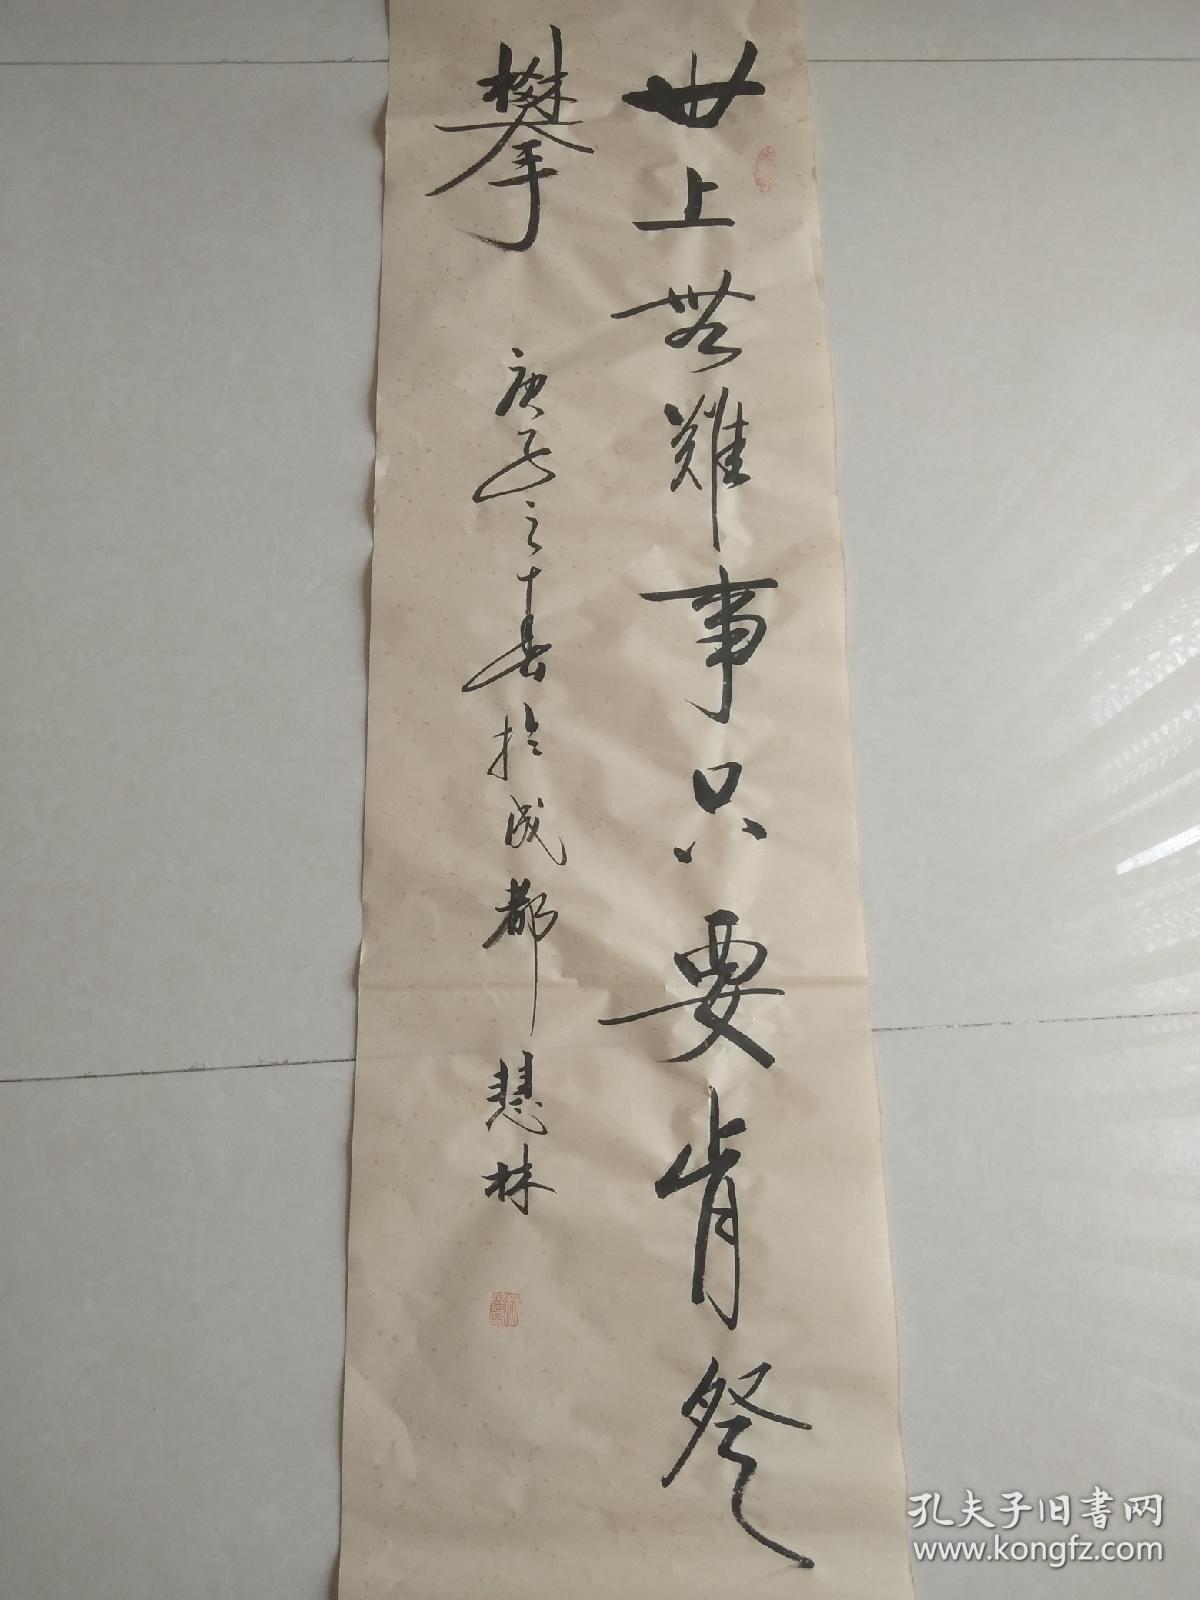 世上無難事只要肯登
攀
庚子之十春於成都慧林
孔夫子旧书网
www.kongfz.com